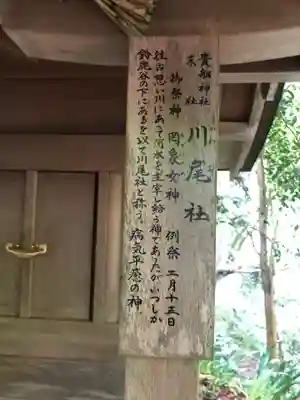 貴船神社
末社
川尾社
御祭神 罔象女神 例祭 二月十五日
往古思い川にあって河水を主宰し給う神であったがいつしか
鈴鹿谷の下にあるを以て川尾社と称う。病気平癒の神